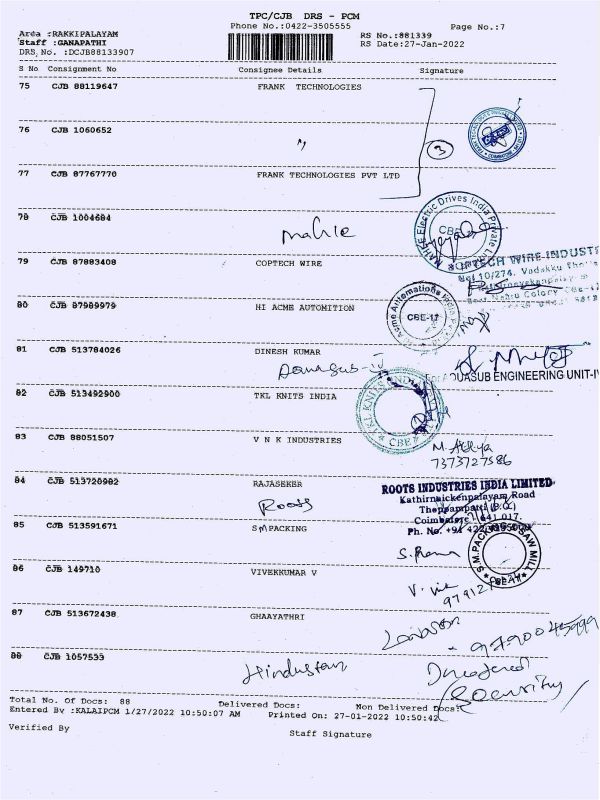 TPC/CJB DRS - PCM
Phone No.:0422-3505555
Page No.:7
Area :RAKKIPALAYAM
Staff :GANAPATHI
DRS No. :DCJB88133907
RS No.:881339
RS Date:27-Jan-2022
S No Consignment No Consignee Details Signature
75 CJB 88119647 FRANK TECHNOLOGIES
76 CJB 1060652 "
3
77 CJB 87767770 FRANK TECHNOLOGIES PVT LTD
78 CJB 1004684 Mahle
MAHLE Electric Drives India Private
CBE
79 CJB 87883408 COPTECH WIRE
COPTECH WIRE INDUST
No: 10/274, Vadakku
80 CJB 87989979 HI ACME AUTOMITION
Acme Automations India
CBE-17
81 CJB 513784026 DINESH KUMAR
For AQUASUB ENGINEERING UNIT-IV
82 CJB 513492900 TKL KNITS INDIA
TKL KNITS INDIA
CBE
83 CJB 88051507 V N K INDUSTRIES
7373727586
84 CJB 513720982 RAJASEKER
Roots
ROOTS INDUSTRIES INDIA LIMITED
Kathirnaickenpalayam Road
Thoppampatti (P.O)
Coimbatore 641 017.
Ph. No. +91 422
85 CJB 513591671 SM PACKING
S.M.PACKING SAW MILL
86 CJB 149710 VIVEKKUMAR V
87 CJB 513672438 GHAAYATHRI
88 CJB 1057533 Hindustan
Security
Total No. Of Docs: 88 Delivered Docs: Non Delivered Docs:
Entered By :KALAIPCM 1/27/2022 10:50:07 AM Printed On: 27-01-2022 10:50:42
Verified By
Staff Signature